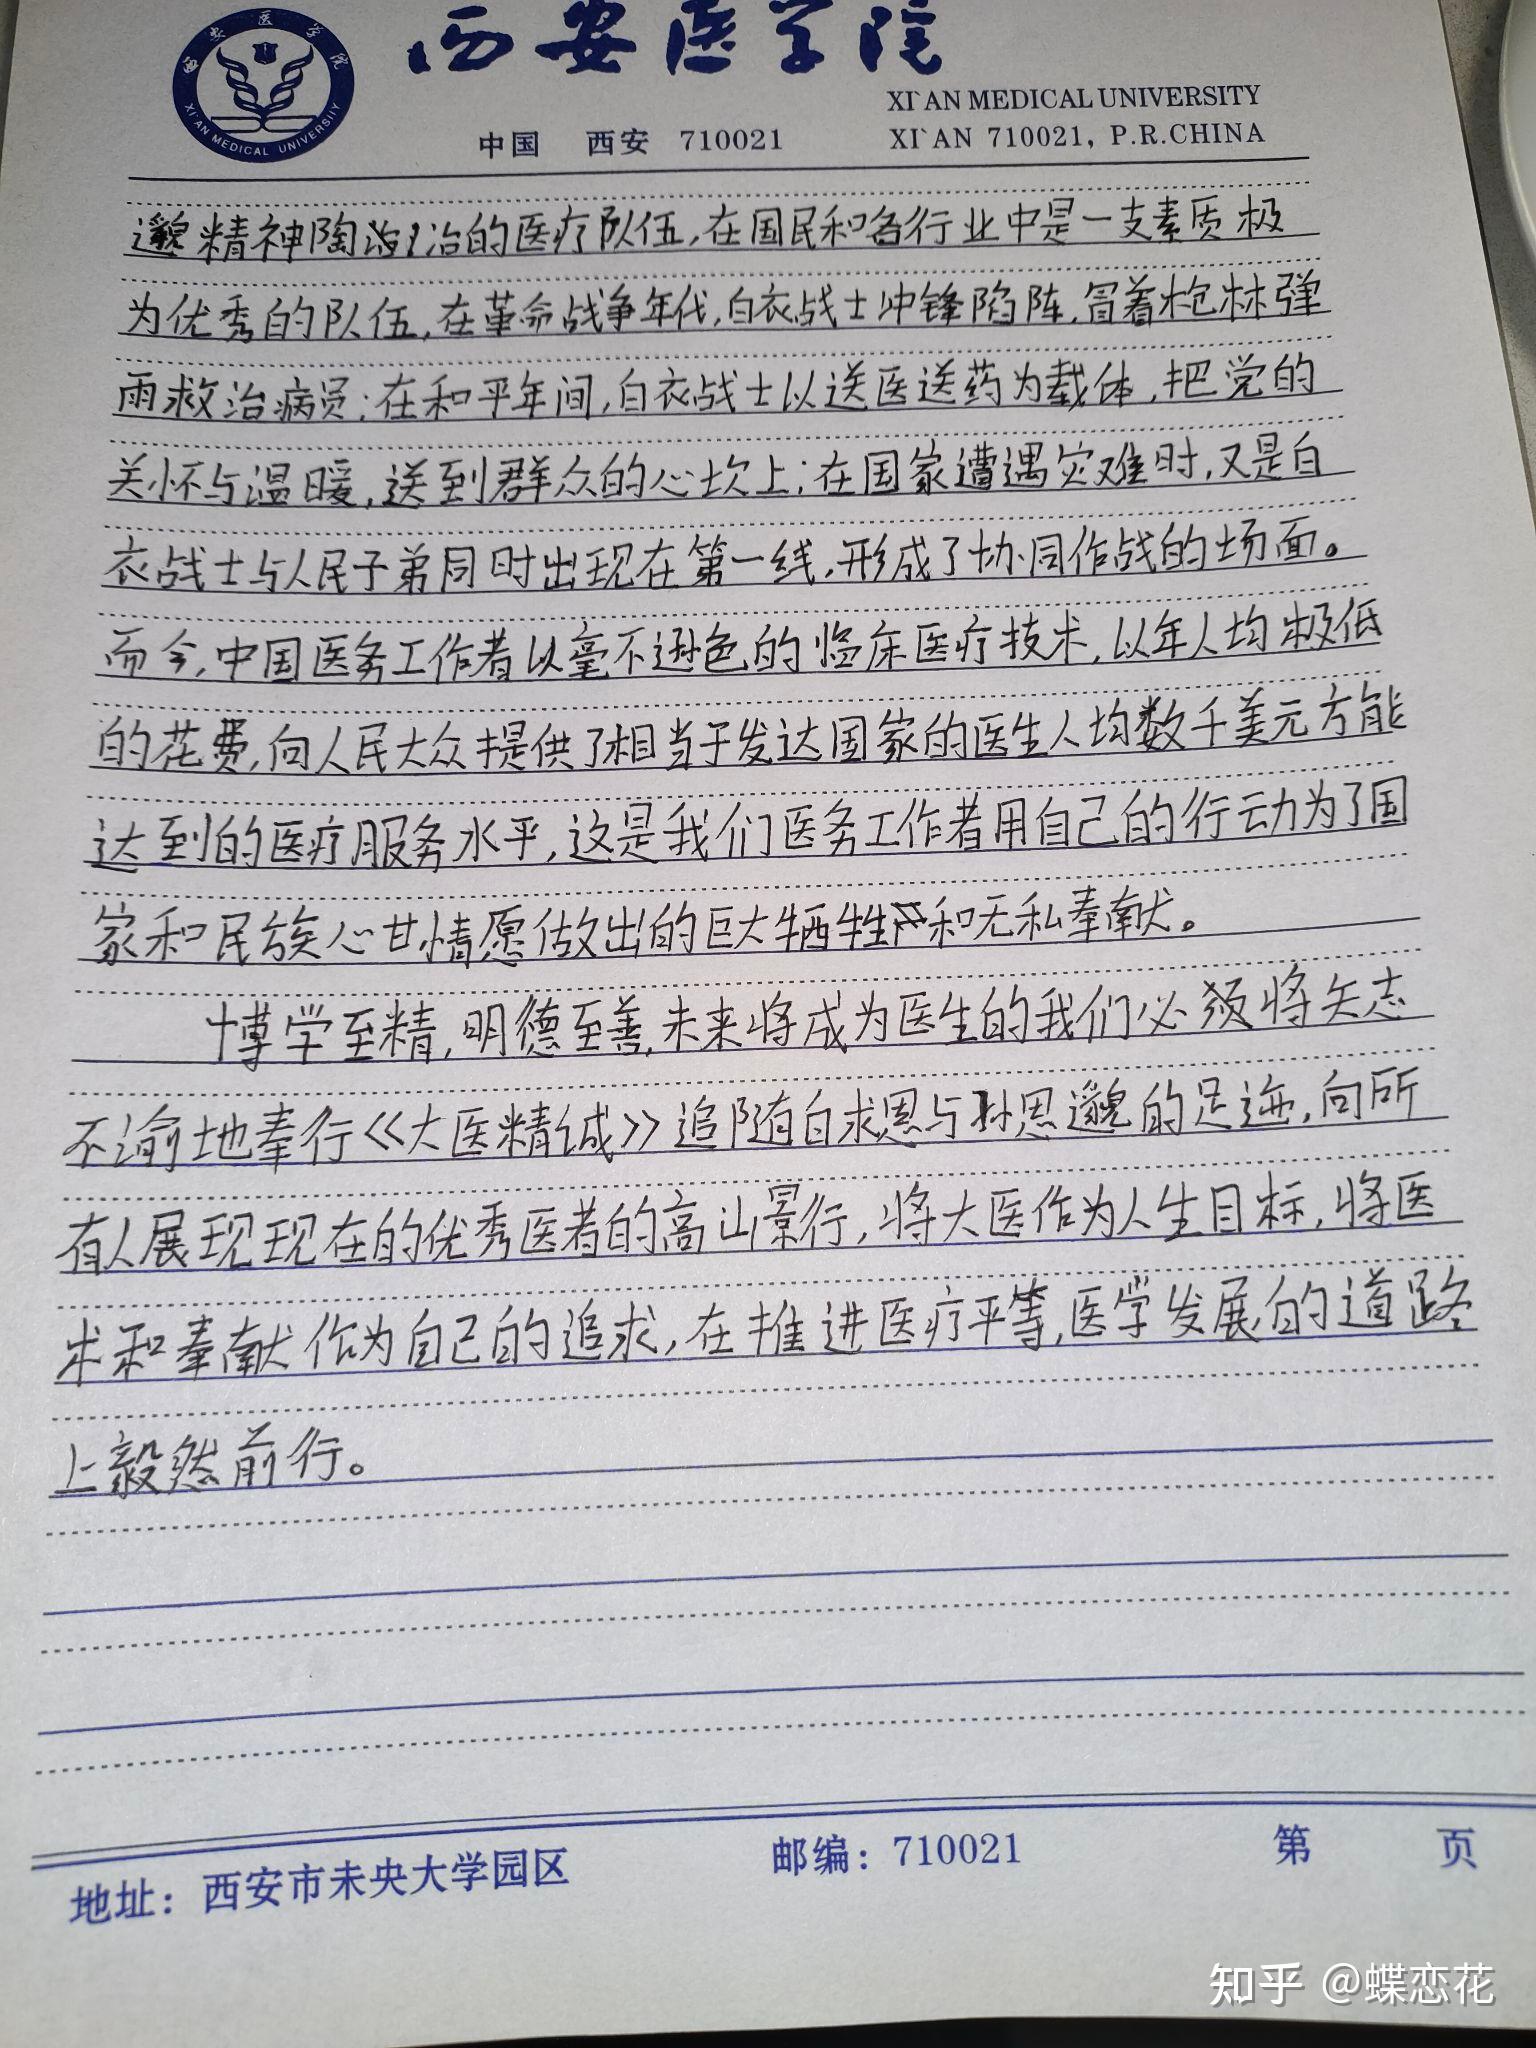 西安医学院
XI`AN MEDICAL UNIVERSITY
中国 西安 710021 XI`AN 710021, P.R.CHINA
西安医学院
XI'AN MEDICAL UNIVERSITY
邈精神陶冶的医疗队伍,在国民和各行业中是一支素质极
为优秀的队伍,在革命战争年代,白衣战士冲锋陷阵,冒着枪林弹
雨救治病员;在和平年间,白衣战士以送医送药为载体,把党的
关怀与温暖,送到群众的心坎上;在国家遭遇灾难时,又是白
衣战士与人民子弟同时出现在第一线,形成了协同作战的场面。
而今,中国医务工作者以毫不逊色的临床医疗技术,以年人均极低
的花费,向人民大众提供了相当于发达国家的医生人均数千美元方能
达到的医疗服务水平,这是我们医务工作者用自己的行动为了国
家和民族心甘情愿做出的巨大牺牲和无私奉献。
博学至精,明德至善,未来将成为医生的我们必须将矢志
不渝地奉行《大医精诚》追随白求恩与孙思邈的足迹,向所
有人展现现在的优秀医者的高山景行,将大医作为人生目标,将医
术和奉献作为自己的追求,在推进医疗平等,医学发展的道路
上毅然前行。
地址:西安市未央大学园区 邮编:710021 第 页
知乎 @蝶恋花